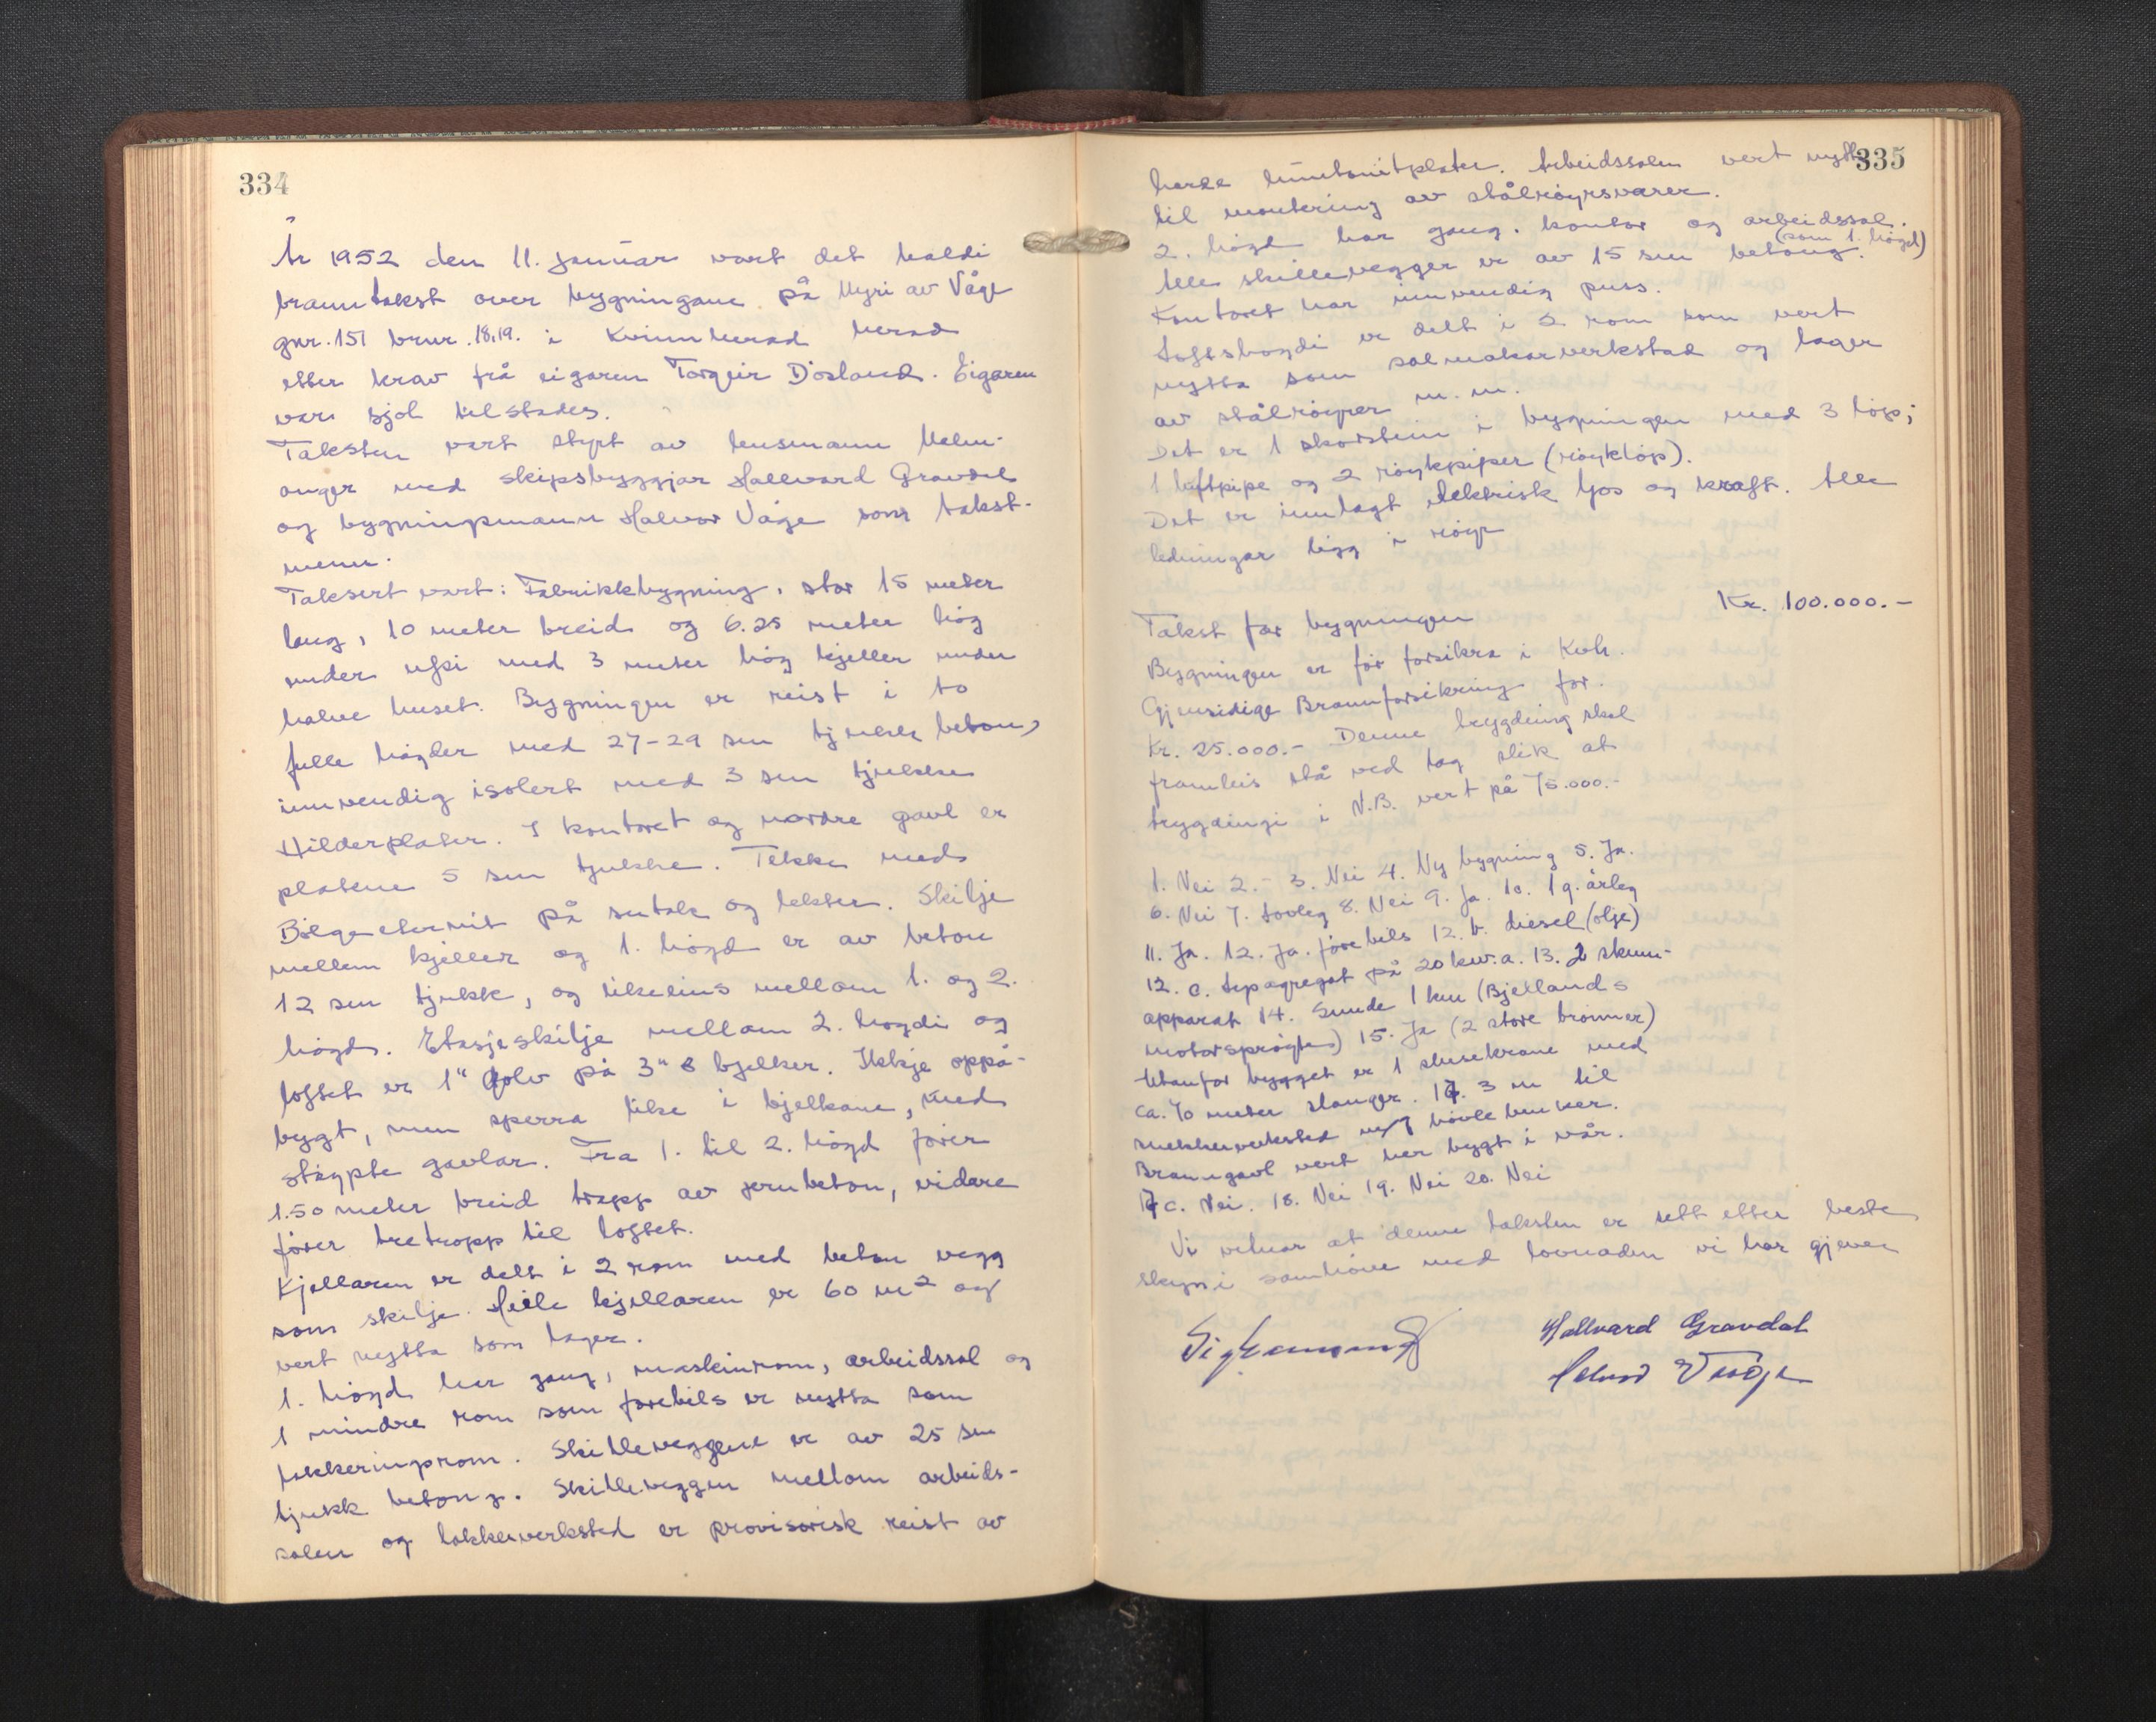 334
År 1952 den 11. januar vart det haldi
branntakst over bygningane på Myri av Våge
gnr. 151 brnr. 18,19. i Kvinnherad herad
etter krav frå eigaren Torgeir Døsland. Eigaren
var sjøl tilstades.
Taksten vart styrt av lensmann Malm-
anger med skipsbyggjar Hallvard Gravdal
og bygningsmann Halvor Våge som takst-
menn.
Taksert vart: Fabrikkbygning, stor 15 meter
lang, 10 meter breid og 6.25 meter høg
under ufsi med 3 meter høg kjeller under
halve huset. Bygningen er reist i to
fulle høgder med 27-29 sm tjukk beton,
innvendig isolert med 3 sm tjukke
Hilderplater. I kontoret og nordre gavl er
platene 5 sm tjukke. Tekke med
Bølgeeternit på sutak og lekter. Skilje
mellem kjeller og 1. høgd er av beton
12 sm tjukk, og likeleins mellom 1. og 2.
høgd. Etasjeskilje mellom 2. høgdi og
loftet er 1" golv på 3" 8 bjelker. Ikkje oppå-
bygt, men sperra like i bjelkane, med
støypte gavlar. Fra 1. til 2. høgd fører
1.50 meter breid trapp av jernbeton, vidare
fører tretrapp til loftet.
Kjellaren er delt i 2 rom med beton vegg
som skilje. Heile kjellaren er 60 m² og
vert nytta som lager.
1. høgd har gang, maskinrom, arbeidssal og
1 mindre rom som førebils er nytta som
lakkeringsrom. Skilleveggene er av 25 sm
tjukk betong. Skilleveggen mellom arbeids-
salen og lakkerverksted er provisorisk reist av
335
harde huntonitplater. Arbeidssalen vert nytta
til montering av stålrøyrsvarer.
2. høgd har gang, kontor og arbeidssal.
(som 1. høgd)
Alle skillevegger er av 15 sm betong.
Kontoret har innvendig puss.
Loftshøgdi er delt i 2 rom som vert
nytta som salmakarverkstad og lager
av stålrøyrer m.m.
Det er 1 skorstein i bygningen med 3 løp;
1 luftpipe og 2 røykpiper (røykløp).
Det er innlagt elektrisk ljos og kraft. Alle
ledningar ligg i røyr
Takst for bygningen Kr. 100.000.-
Bygningen er før forsikra i Kvh.
Gjensidige Brannforsikring for
Kr. 25.000.- Denne trygding skal
framleis stå ved lag slik at
trygdingi i N.B. vert på 75.000.-
1. Nei 2.- 3. Nei 4. Ny bygning 5. Ja.
6. Nei 7. Lovleg 8. Nei 9. Ja. 10. 1 g. årleg
11. Ja. 12. Ja. førebels 12. b. diesel (olje)
12. c. Lysagregat på 20 kw.a. 13. 2 skum-
apparat 14. Sunde 1 km (Bjellands
motorsprøyte) 15. Ja (2 store brønner)
Utanfor bygget er 1 slusekrane med
ca. 70 meter slanger. 17. 3 m til
snekkerverksted m/ høvle benker.
Branngavl vert her bygt i vår.
17 c. Nei. 18. Nei 19. Nei 20. Nei
Vi vitnar at denne taksten er sett etter beste
skyn i samhøve med lovnaden vi har gjeve
Hallvard Gravdal
Halvor Våge